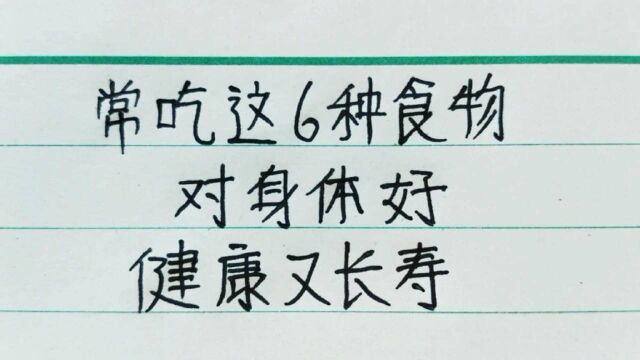 常吃这6种食物
对身体好
健康又长寿